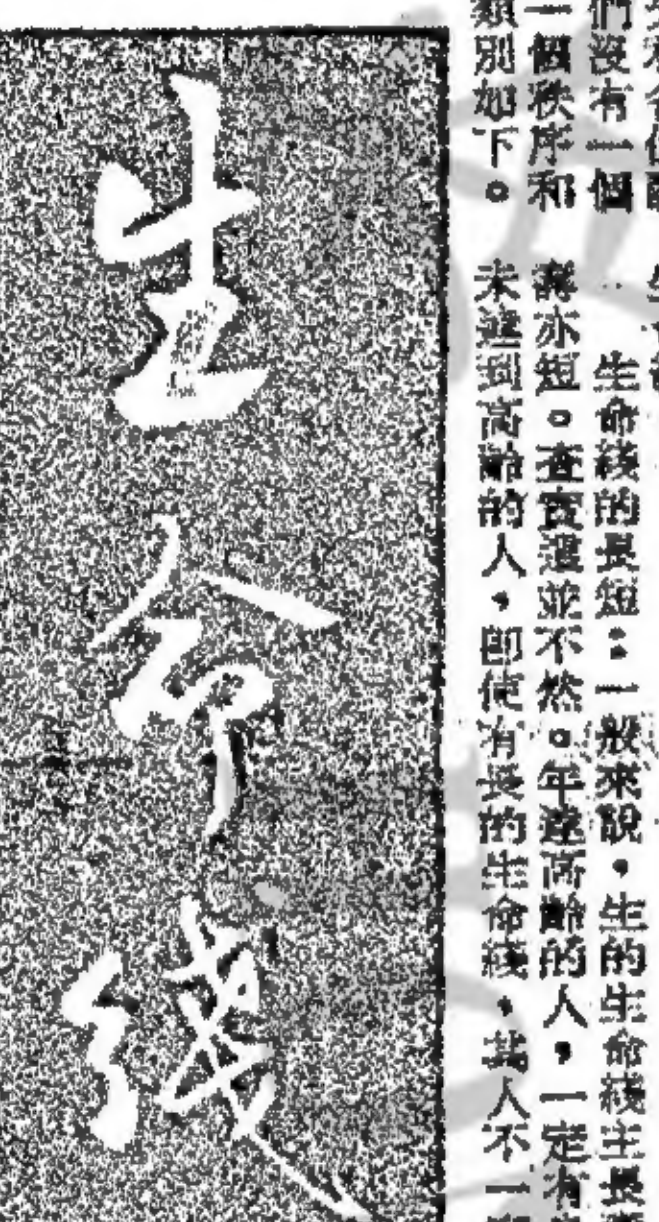 們沒有一個
一個秩序和
類別如下。
生命綫的長短：一般來說，生的生命綫主長
壽亦短。查實還並不然。年達高齡的人，一定有
未達到高齡的人，即使有長的生命綫，其人不一
生命綫